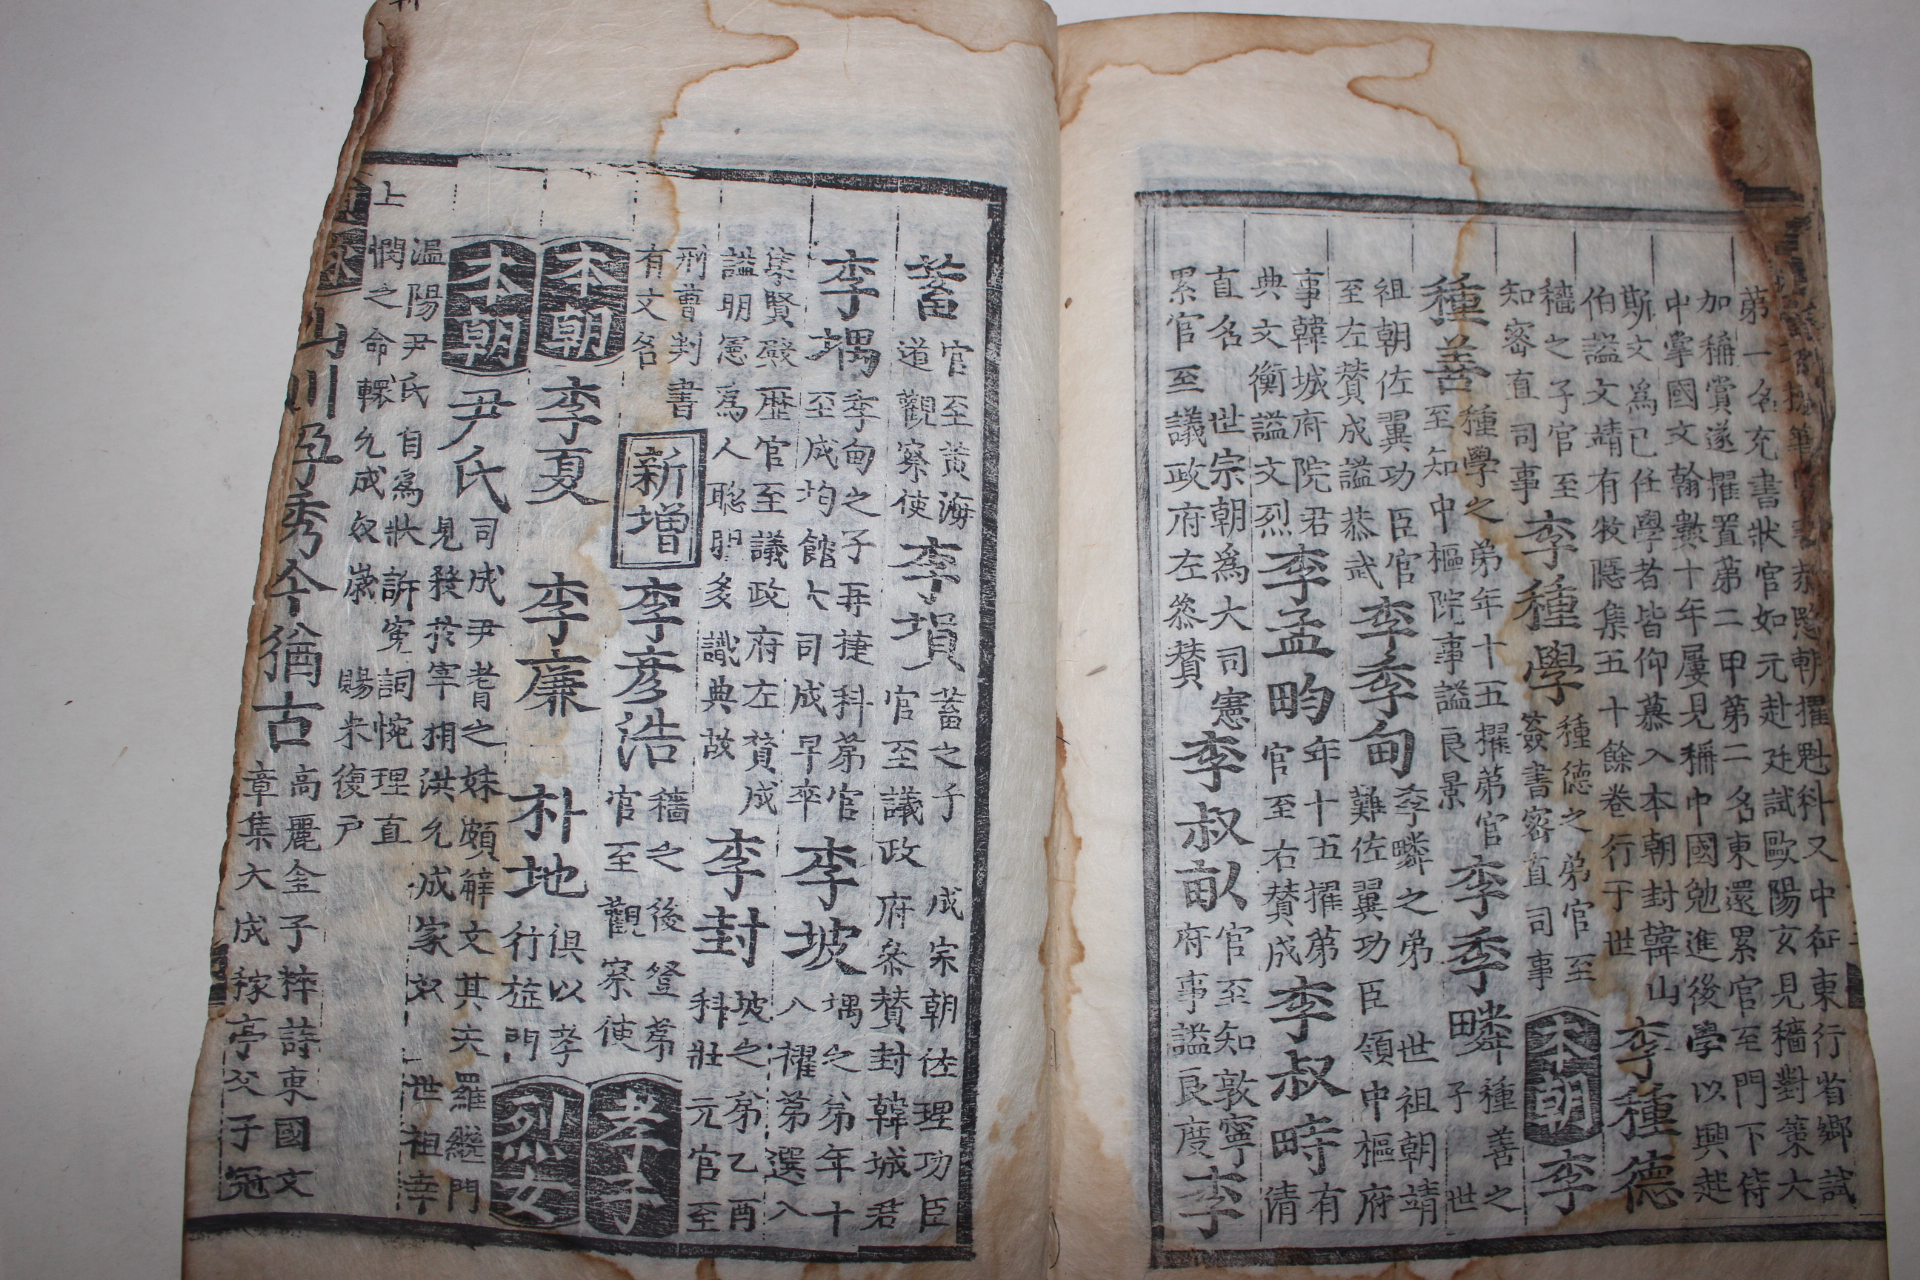 恭愍朝擢魁科又中征東行省鄕試
第一名充書狀官如元赴廷試歐陽玄見穡對策大
加稱賞遂擢置第二甲第二名東還累官至門下侍
中掌國文翰數十年屢見稱中國勉進後學以興起
斯文爲己任學者皆仰慕入本朝封韓山
伯謚文靖有牧隱集五十餘卷行于世 李種德
穡之子官至知密直司事 李種學 種德之弟官至簽書密直司事 本朝 李
種善 種學之弟年十五擢第官至知中樞院事謚良景 李季疄 種善之子世
祖朝佐翼功臣官至左贊成謚恭武 李季甸 季疄之弟 世祖朝靖難佐翼功臣領中樞府
事韓城府院君典文衡謚文烈 李孟畇 年十五擢第官至右贊成 李叔畤 有淸
直名 世宗朝爲大司憲累官至議政府左叅贊 李叔畝 官至知敦寧府事謚良度 李
蓄 官至黃海道觀察使 李塤 蓄之子 成宗朝佐理功臣官至議政府叅贊封韓城君
李堣 季甸之子再捷科第官至成均館大司成早卒 李坡 堣之弟年十八擢第選入
集賢殿歷官至議政府左贊成謚明憲爲人聡明多識典故 李封 坡之弟乙酉科壯元官至
刑曹判書有文名 新增 李彦浩 穡之後登第官至觀察使 孝子
本朝 李夏 李廉 朴地 俱以孝行旌門 烈女
本朝 尹氏 司成尹耆之妹頗解文其夫羅繼門見殺於宰相洪允成家奴 世祖幸
溫陽尹氏自爲狀訴寃詞惋理直
上憫之命轘允成奴歲賜米復戶
題詠 山川孕秀今猶古 高麗金子粹詩東國文章集大成稼亭父子冠